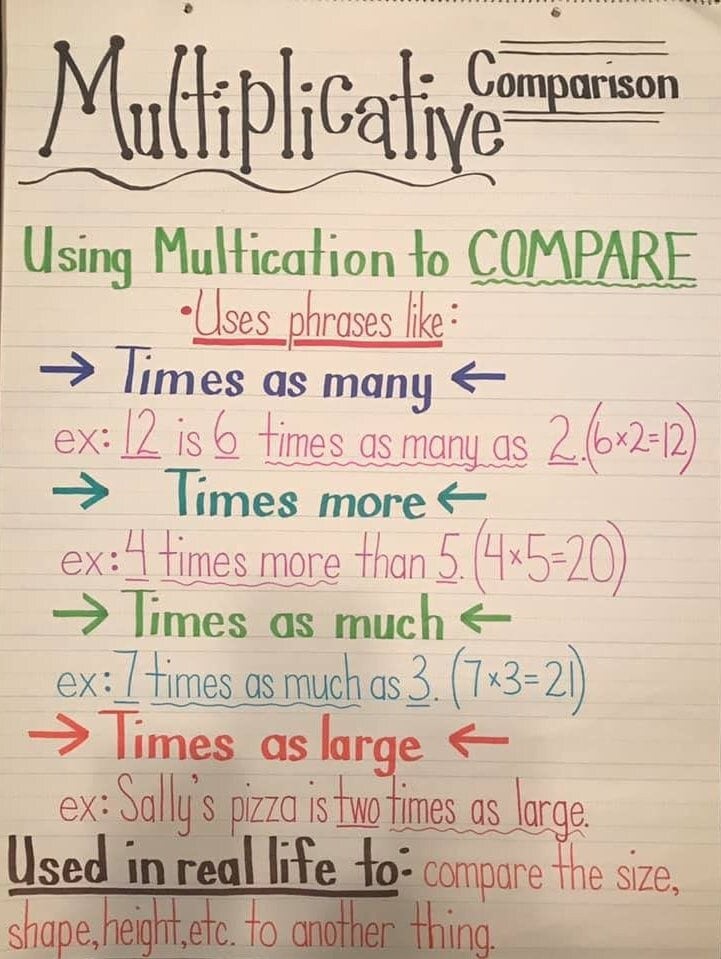 Multiplicative Comparison
Using Multication to COMPARE
•Uses phrases like:
→ Times as many ←
ex: 12 is 6 times as many as 2. (6×2=12)
→ Times more ←
ex: 4 times more than 5. (4×5=20)
→ Times as much ←
ex: 7 times as much as 3. (7×3=21)
→ Times as large ←
ex: Sally's pizza is two times as large.
Used in real life to: compare the size,
shape, height, etc. to another thing.